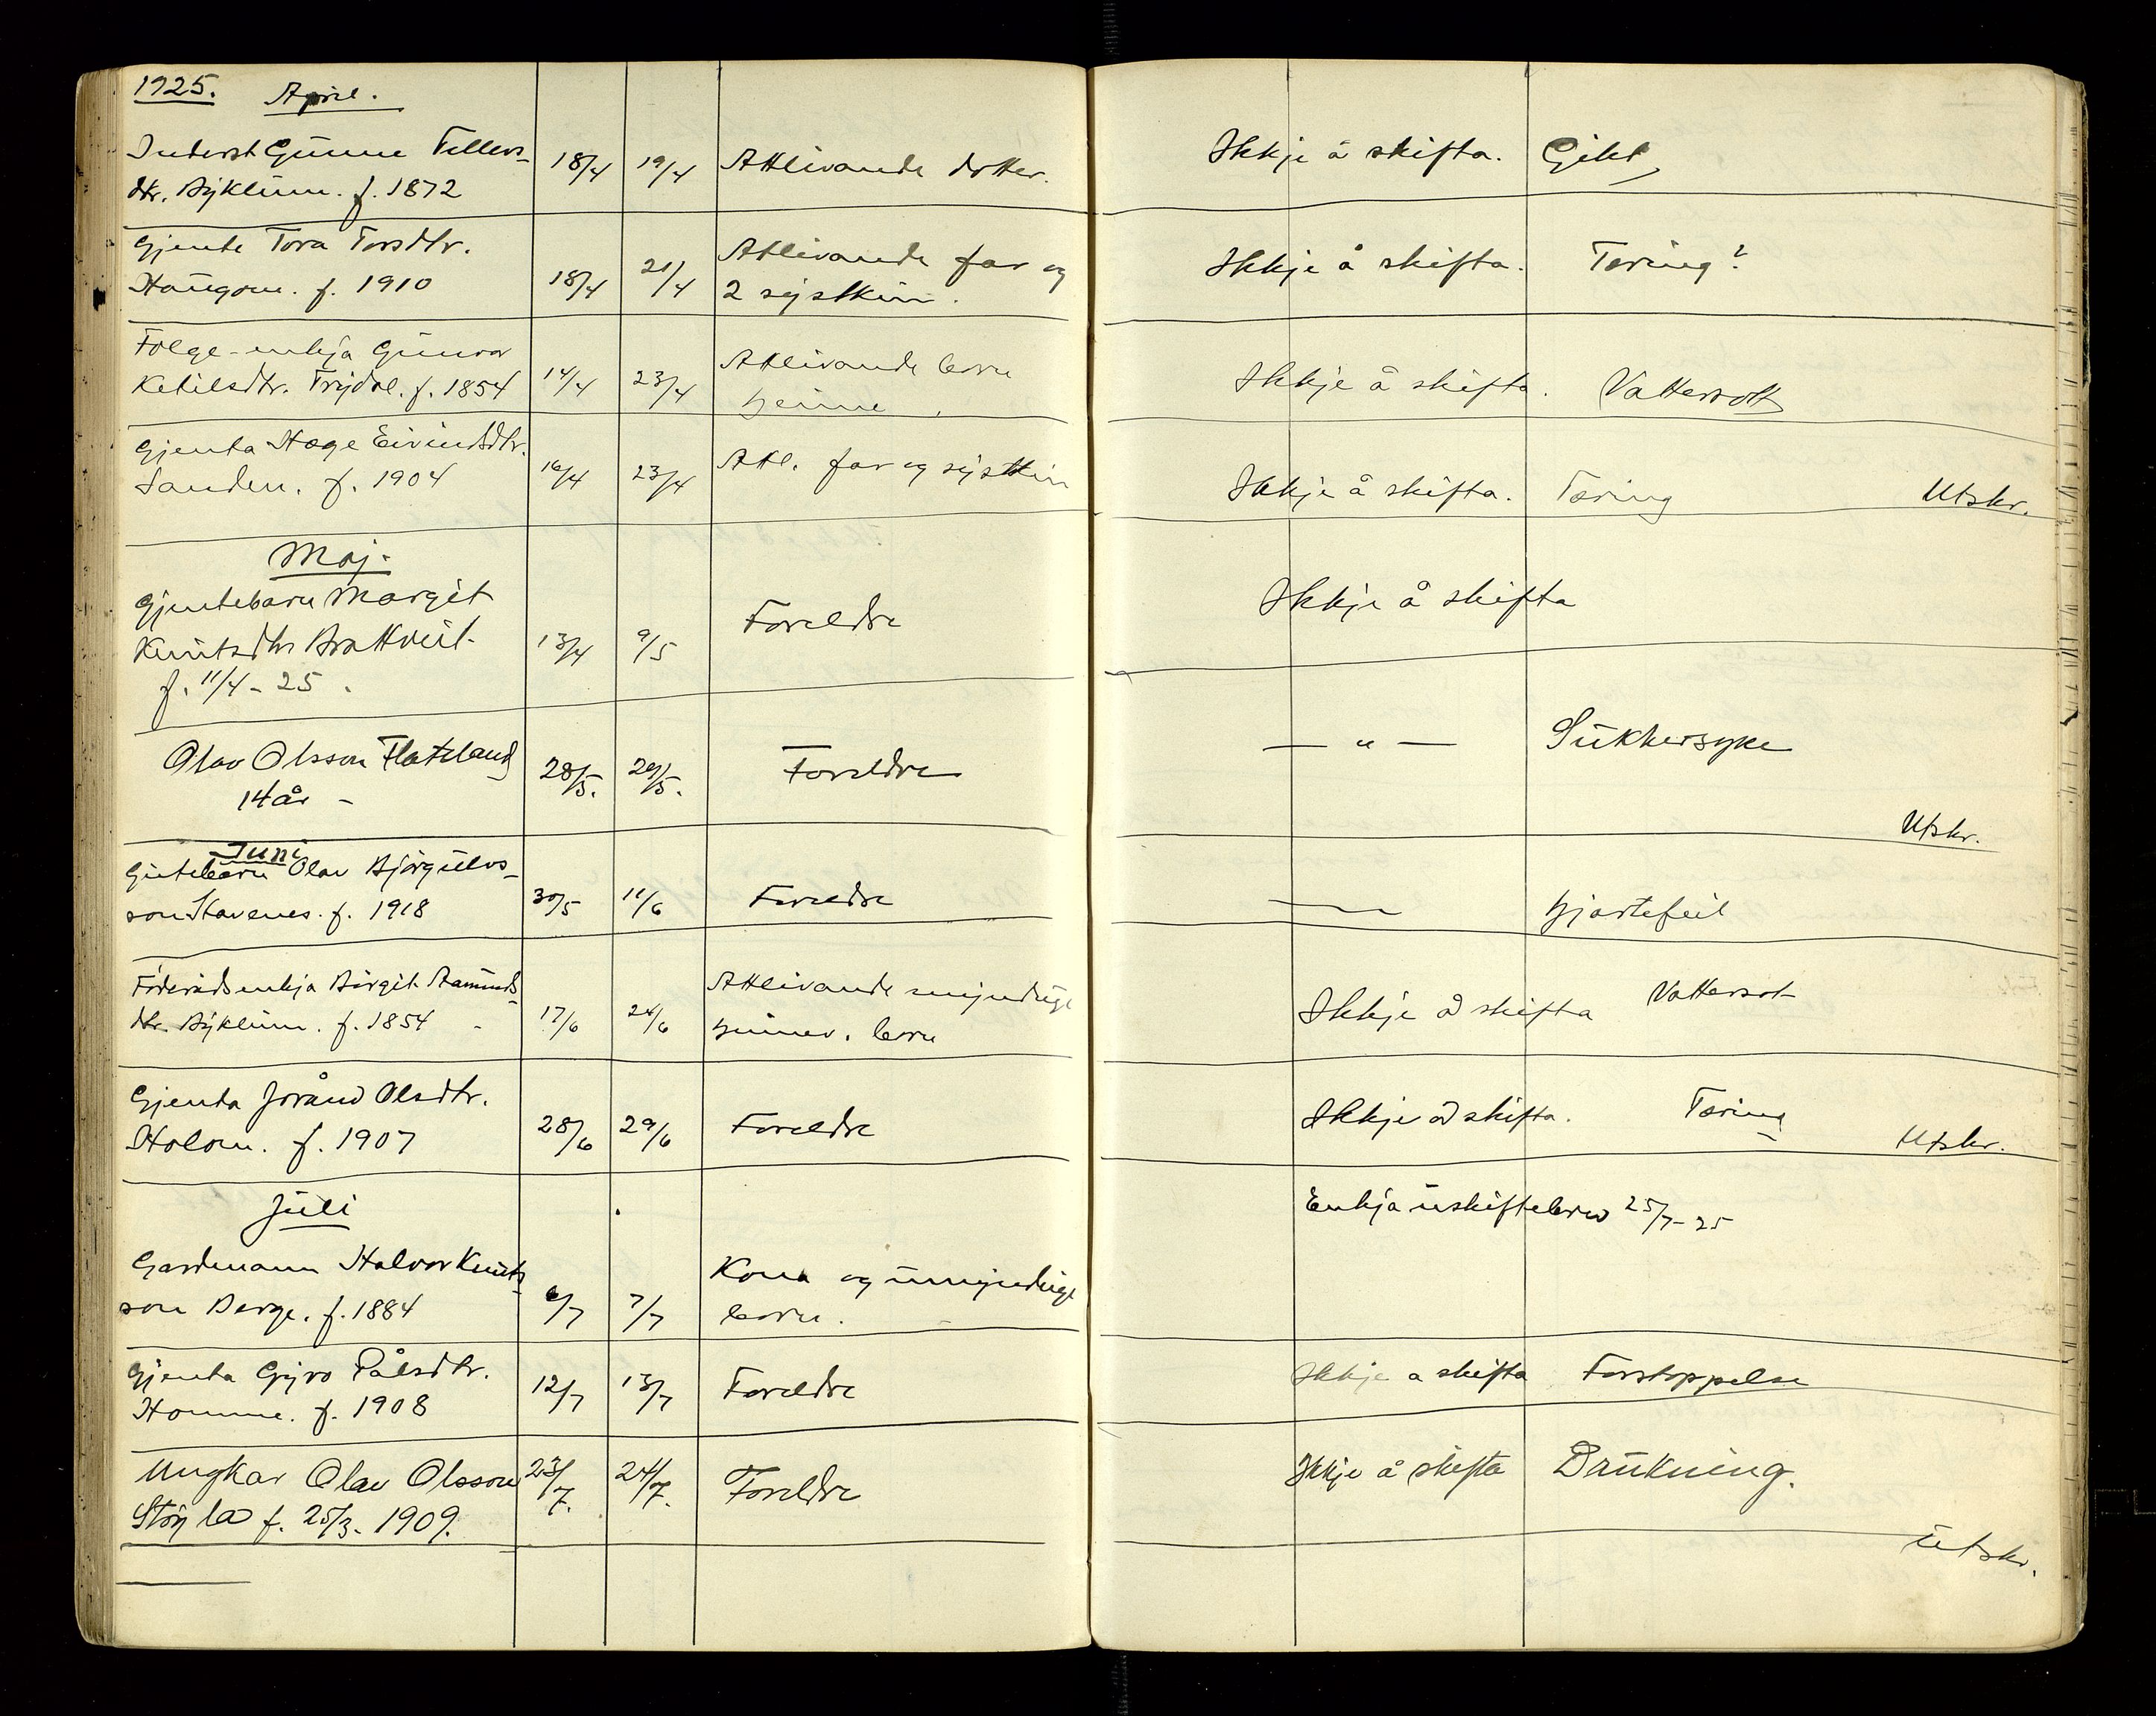 1925. April.
Inderst Gunne Tellevs- 18/4 19/4 Attlivande dotter. Ikkje å skifta. Gikt
dtr. Byklum. f. 1872
Gjente Tora Torsdtr. Attlivande far og Ikkje å skifta. Tæring?
Haugom. f. 1910 18/4 21/4 2 systkin.
Følge-enkja Gunvor Attlivande born
Ketilsdtr. Trydal. f. 1854 14/4 23/4 henne Ikkje å skifta. Vattersott
Gjenta Hæge Eivindsdtr.
Sanden. f. 1904 16/4 23/4 Attl. far og systkin Ikkje å skifta. Tæring Utskr.
Maj.
Gjentebarn Margit
Knutsdtr Brattveit 13/4 9/5 Foreldre Ikkje å skifta
f. 11/4-25.
Olav Olsson Flateland 28/5. 29/5. Foreldre — " — Sukkersyke
14 år -
Utskr.
Juni
Gutebarn Olav Bjørgulvs-
son Stavenes. f. 1918 30/5 11/6 Foreldre — Hjartefeil
Føderådsenkja Birgit Aamunds- Attlivande myndige
dtr. Byklum. f. 1854 17/6 24/6 born Ikkje å skifta Vattersot
Gjenta Jorånd Olsdtr.
Holom. f. 1907 28/6 29/6 Foreldre Ikkje å skifta. Tæring Utskr.
Juli
Enkja uskiftebrev 25/7-25
Gardmann Halvor Knuts- Kona og umyndige
son Berge. f. 1884 6/7 7/7 born.
Gjenta Gyro Pålsdtr.
Homme. f. 1908 12/7 13/7 Foreldre Ikkje å skifta Forstoppelse
Ungkar Olav Olsson 23/7. 24/7. Foreldre Ikkje å skifta Drukning.
Støyla f. 25/3. 1909.
Utskr.